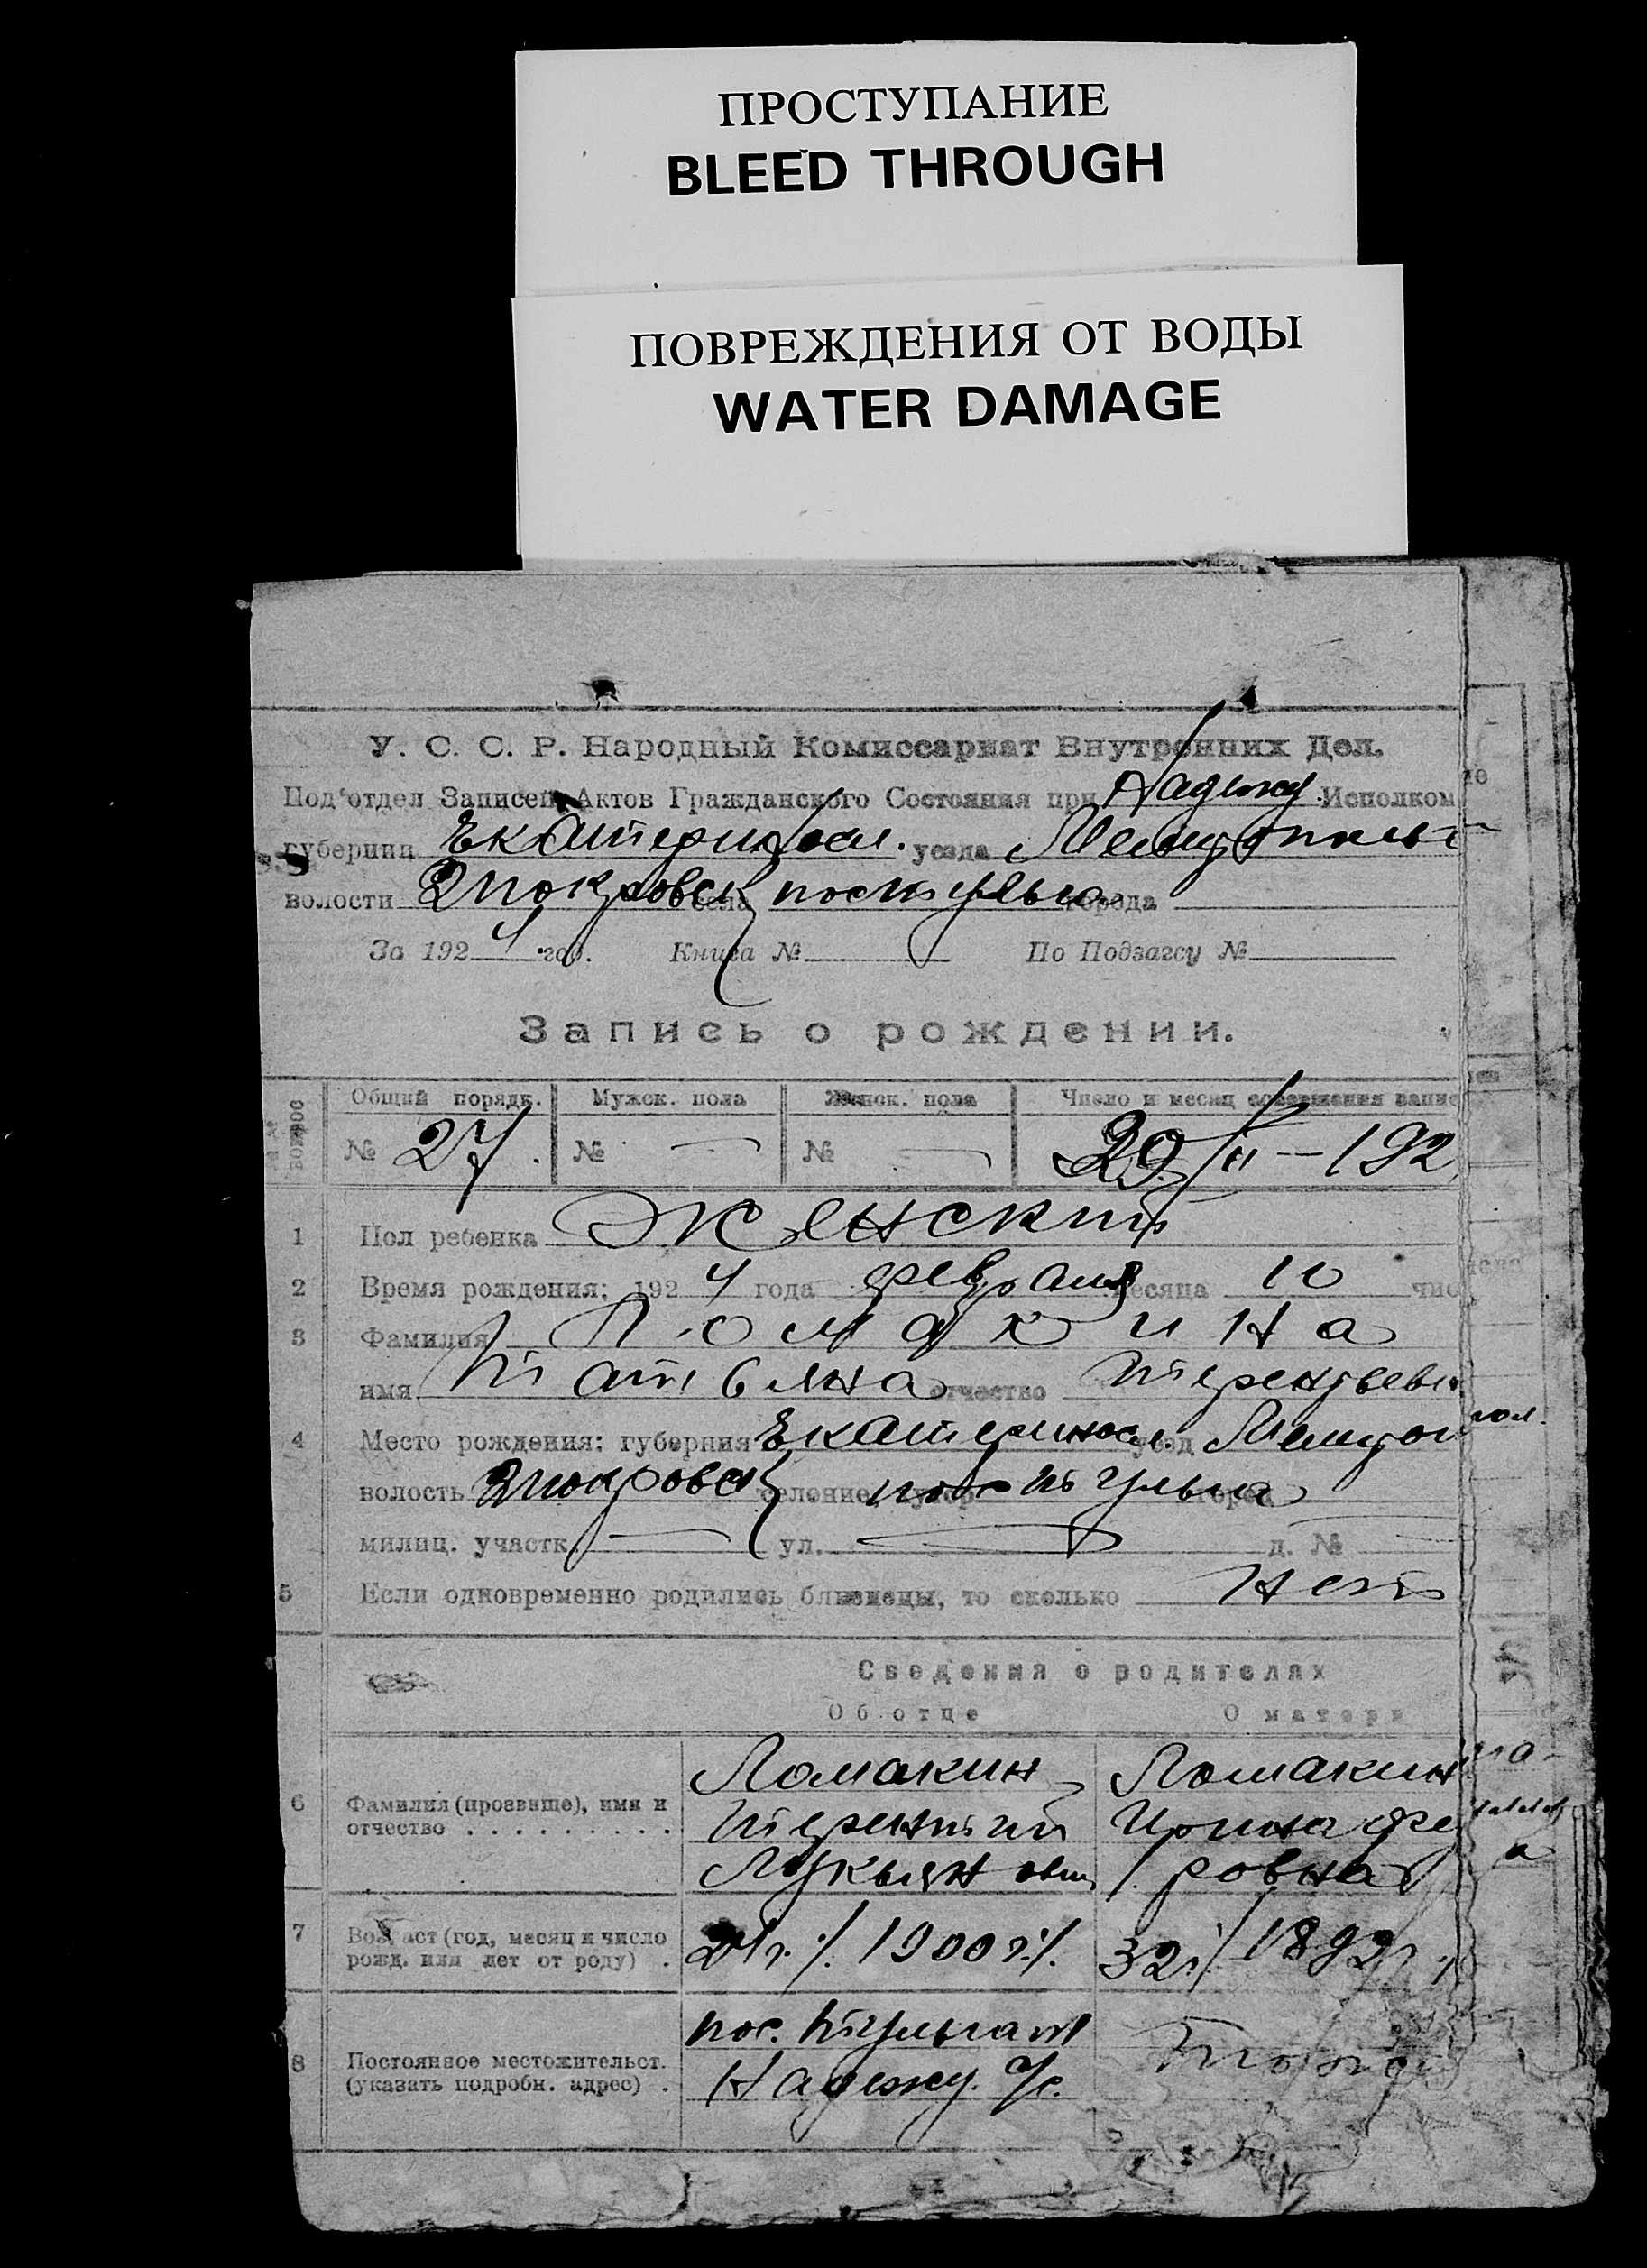 ПРОСТУПАНИЕ
BLEED THROUGH
ПОВРЕЖДЕНИЯ ОТ ВОДЫ
WATER DAMAGE
У. С. С. Р. Народный Комиссариат Внутренних Дел.
Под'отдел Записей Актов Гражданского Состояния при Надежд. Исполком
губернии Екатериносл. уезда
волости села города
За 1924 год. Книга № По Подзагсу №
Запись о рождении.
Общий порядк. Мужск. пола Женск. пола Число и месяц совершения запис
№ 27. № — № — 29/II — 192
1 Пол ребенка Женский
2 Время рождения: 1924 года февраля месяца 10 чис
3 Фамилия Ломакина
имя Татьяна отчество Терентьевн
4 Место рождения: губерния Екатеринос. уезд
волость селение хутор город
милиц. участк. — ул. — д. № —
5 Если одновременно родились близнецы, то сколько Нет
Сведения о родителях
Об отце О матери
Ломакин Ломакин
6 Фамилия (прозвище), имя и Терентий Ирина Фе
отчество . . . . . . . . . Лукьянович ровна
7 Возраст (год, месяц и число 24г. /. 1900 г./. 32г/. 1892г.
рожд. или лет от роду) .
пос.
8 Постоянное местожительст. Надежд. с/с.
(указать подробн. адрес) .